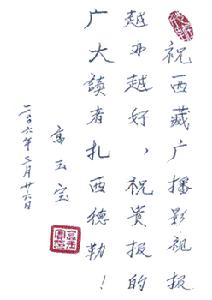 祝西藏广播影视报
越办越好，祝贵报的
广大讀者扎西德勒！
章玉宝
二〇〇六年三月廿六日